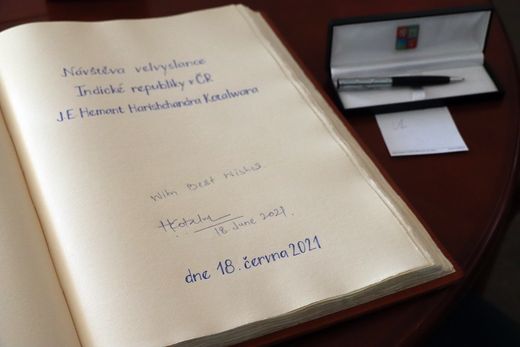 Návštěva velvyslance
Indické republiky v ČR
J.E Hemant Harishchandra Kotalwara
With Best Wishes
HKotalw
18 June 2021.
dne 18. června 2021